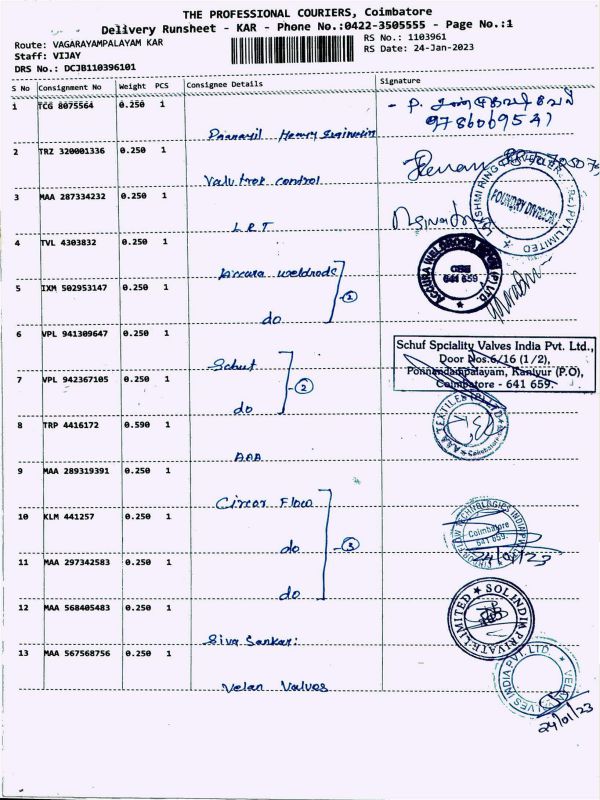 THE PROFESSIONAL COURIERS, Coimbatore
Delivery Runsheet - KAR - Phone No.:0422-3505555 - Page No.:1
Route: VAGARAYAMPALAYAM KAR
Staff: VIJAY
DRS No.: DCJB110396101
RS No.: 1103961
RS Date: 24-Jan-2023
S No Consignment No Weight PCS Consignee Details Signature
1 TCG 8075564 0.250 1
Heavy Engineering
9786069541
2 TRZ 320001336 0.250 1
Valu trak control
3 MAA 287334232 0.250 1
L R T
FOUNDRY DIVISION
4 TVL 4303832 0.250 1
Accura weldrods
ACCURA WELDRODS
641 659
5 IXM 502953147 0.250 1
do
1
6 VPL 941309647 0.250 1
Schuf
Schuf Spciality Valves India Pvt. Ltd.,
Door Nos.6/16 (1/2),
Ponnandampalayam, Kaniyur (P.O),
Coimbatore - 641 659.
7 VPL 942367105 0.250 1
do
2
8 TRP 4416172 0.590 1
AAA
AAA TEXTILES (P) LTD
Coimbatore
9 MAA 289319391 0.250 1
Circor Flow
10 KLM 441257 0.250 1
do
3
Coimbatore
641 659
24/01/23
11 MAA 297342583 0.250 1
do
12 MAA 568405483 0.250 1
Siva Sankar:
SOL INDIA PRIVATE LIMITED
13 MAA 567568756 0.250 1
Velan Valves
VELAN VALVES INDIA PVT. LTD.
24/01/23